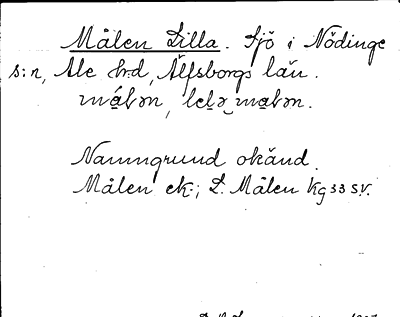 Målen Lilla. Sjö i Nödinge
s:n, Ale hrd, Älfsborgs län.
Namngrund okänd.
Målen ek; L. Målen Kg 33 sv.